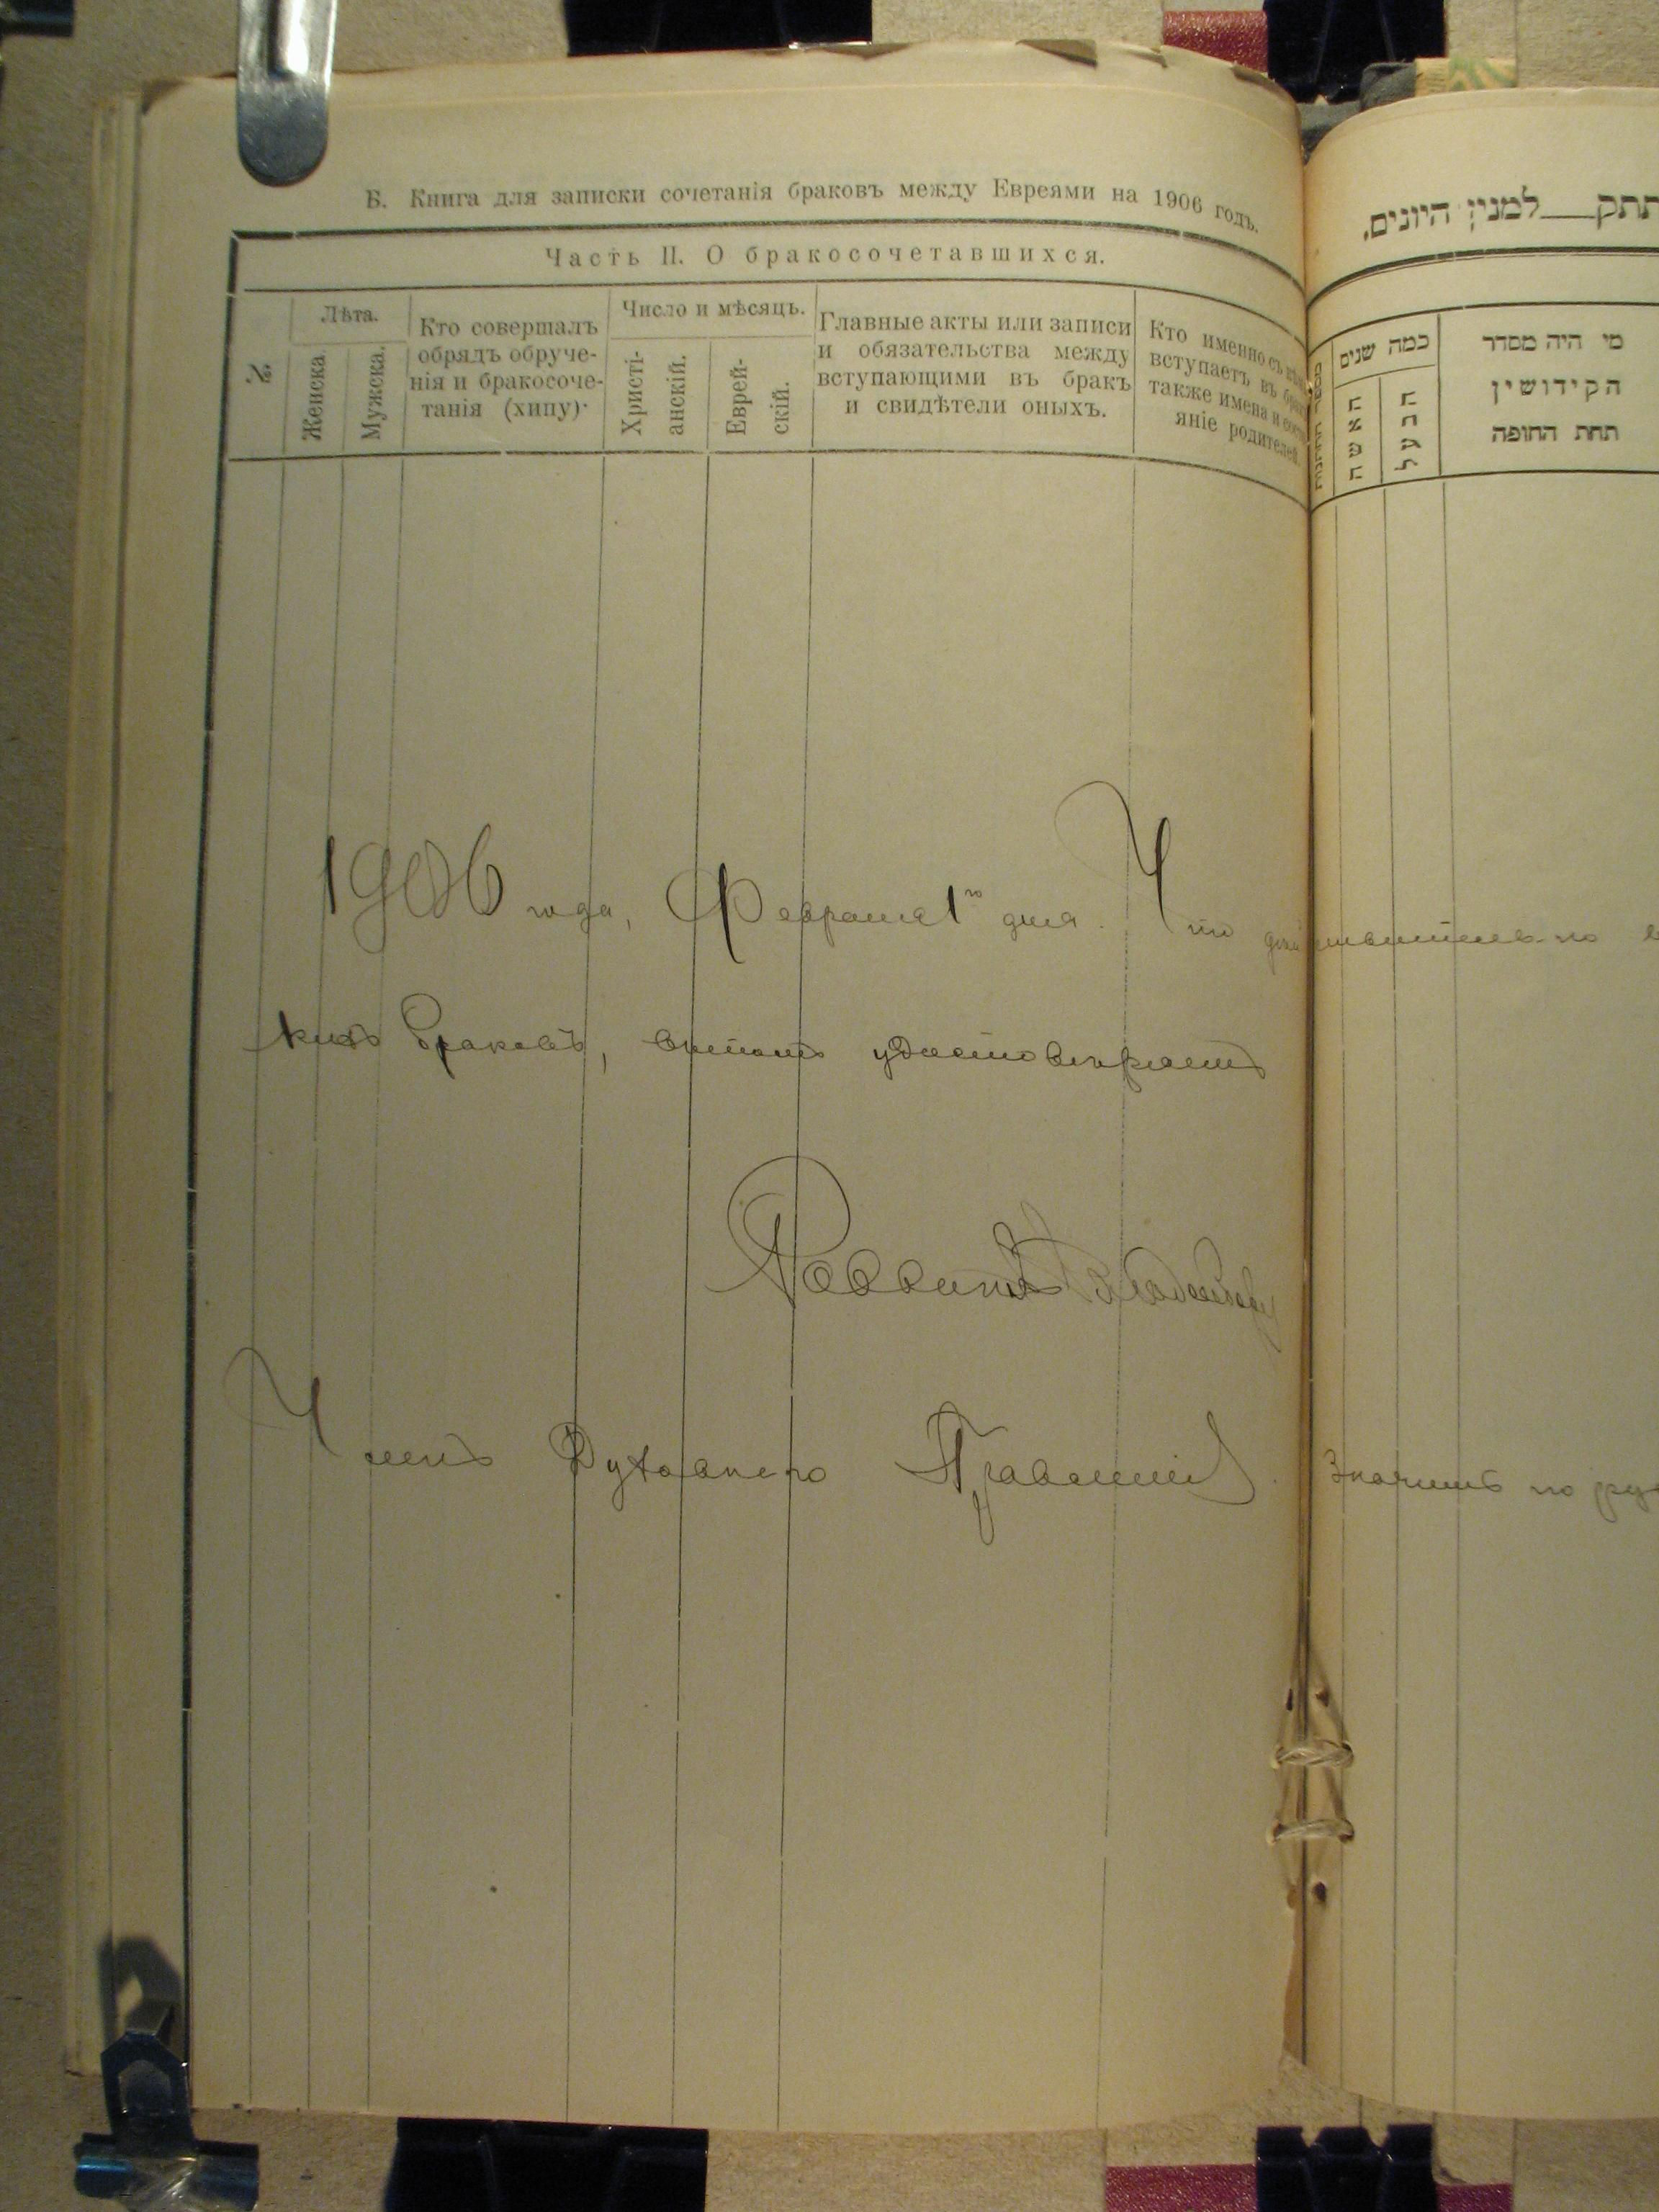 Б. Книга для записки сочетанія браковъ между Евреями на 1906 годъ.
Часть II. О бракосочетавшихся.
№.
Лѣта.
Женска
Мужска.
Кто совершалъ
обрядъ обруче-
нія и бракосоче-
танія (хипу)·
Число и мѣсяцъ.
Христі-
анскій.
Еврей-
скій.
Главные акты или записи
и обязательства между
вступающими въ бракъ
и свидѣтели оныхъ.
Кто именно съ кѣмъ
вступаетъ въ бракъ
также имена и состо
яніе родителей.
1906 года, Февраля 1го дня. Что действительно
кихъ браковъ, въ томъ удостовѣряетъ
Раввинъ
Членъ Духовнаго Правленія. Значитъ по
למנין היונים.
כמה שנים
האשה
הבעל
מי היה מסדר
הקידושין
תחת החופה